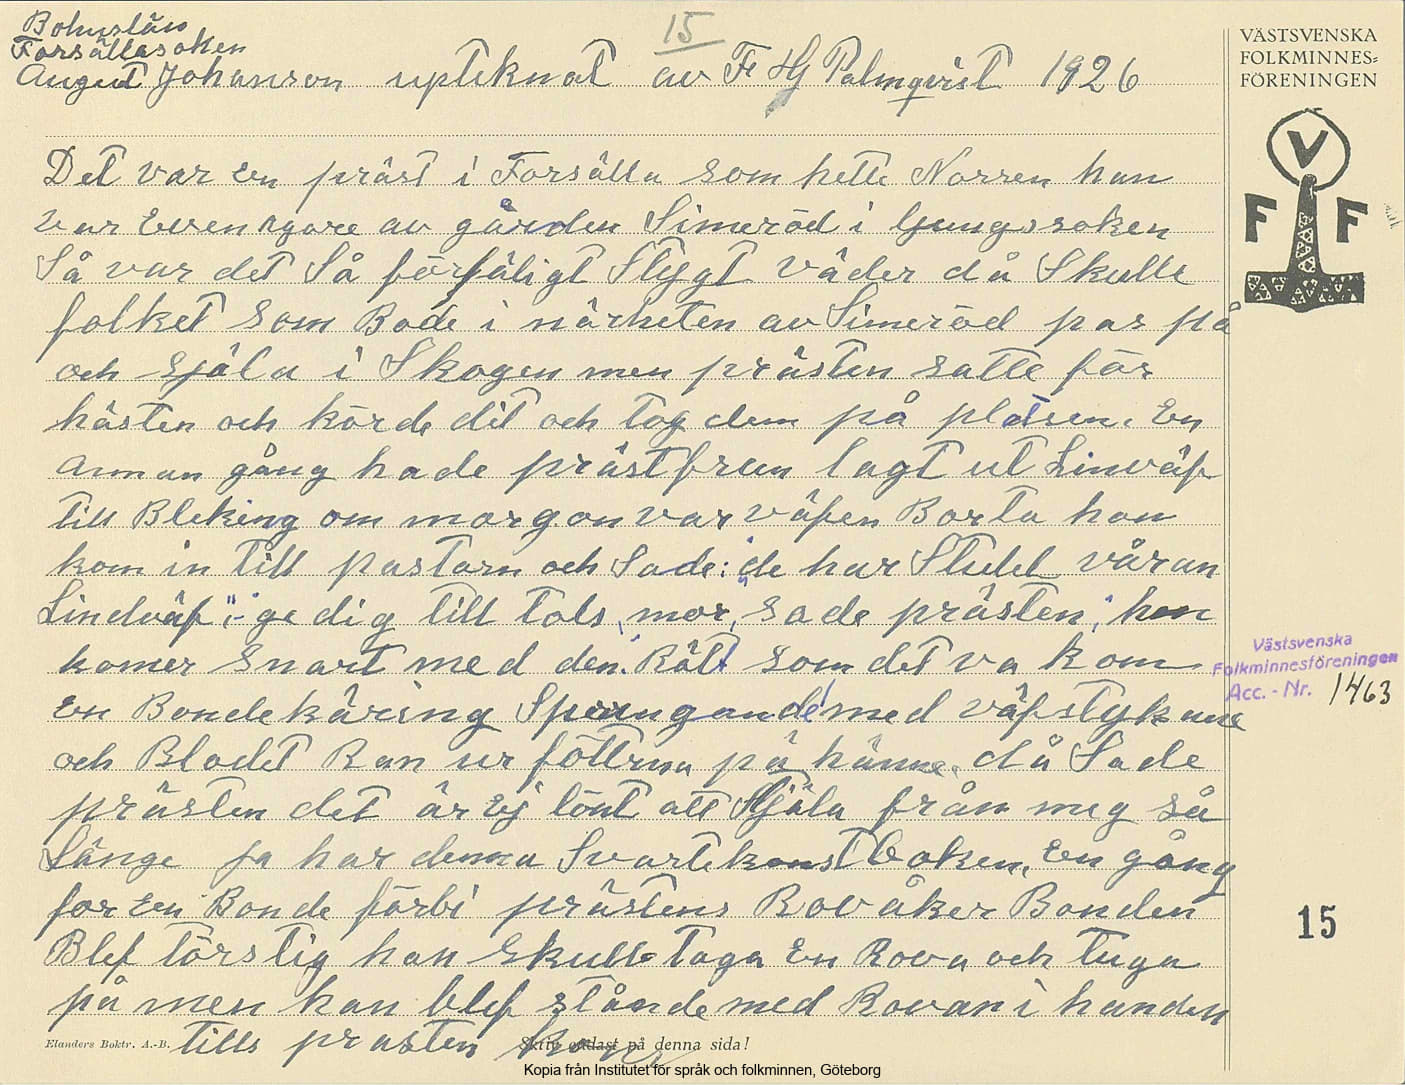 15
Bohuslän
Forsällasoken
August Johanson upteknat av Fr Hj Palmqvist 1926
VÄSTSVENSKA
FOLKMINNES=
FÖRENINGEN
V
F F
Det var en präst i Forsälla som hette Norren han
var även egare av gården Simeröd i ljungssoken
Så var det Så förfäligt Stygt väder då Skulle
folket som Bode i närheten av Simeröd pas på
och själa i Skogen men prästen satte för
hästen och körde dit och tog dem på platsen. En
annan gång hade prästfrun lagt ut Linväf
till Bleking om morgon var väfen Borta hon
kom in till pastorn och Sade: "de har Stulet våran
Lindväf"; - "ge dig till tols, mor," sade prästen, "hon
komer snart med den." Rätt som det va kom
en Bondekäring Springande med väfstykene
och Blodet Ran ur föttrna på hänne. då Sade
prästen det är Ej lönt att Stjäla från meg så
Länge ja har denna Svartekonstboken. En gång
for en Bonde förbi prästens Rovåker Bonden
Blef törstig han skulle taga en Rova och tuga
på men han blef stånde med Rovan i handen
tills prasten kom
Västsvenska
Folkminnesföreningen
Acc. - Nr. 1463
15
Elanders Boktr. A.-B.
Skriv endast på denna sida!
Kopia från Institutet för språk och folkminnen, Göteborg